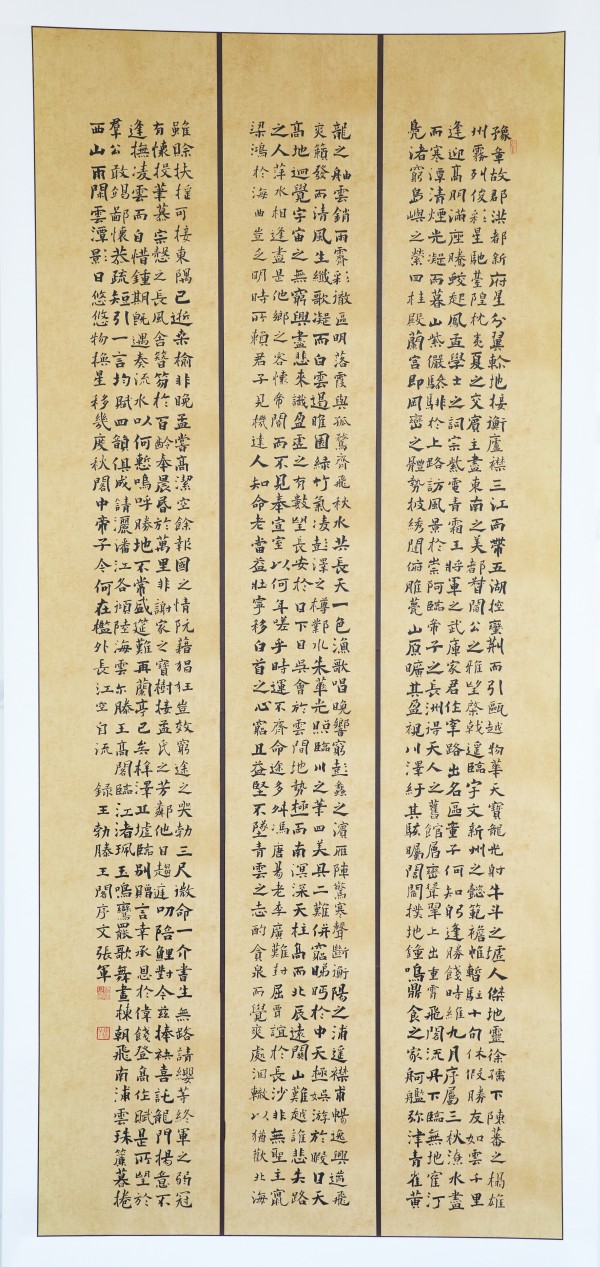 豫章故郡洪都新府星分翼軫地接衡廬襟三江而帶五湖控蠻荊而引甌越物華天寶龍光射牛斗之墟人傑地靈徐孺下陳蕃之榻雄
州霧列俊彩星馳臺隍枕夷夏之交賓主盡東南之美都督閻公之雅望棨戟遙臨宇文新州之懿範襜帷暫駐十旬休假勝友如雲千里
逢迎高朋滿座騰蛟起鳳孟學士之詞宗紫電青霜王將軍之武庫家君作宰路出名區童子何知躬逢勝餞時維九月序屬三秋潦水盡
而寒潭清煙光凝而暮山紫儼驂騑於上路訪風景於崇阿臨帝子之長洲得天人之舊館層巒聳翠上出重霄飛閣流丹下臨無地鶴汀
鳧渚窮島嶼之縈回桂殿蘭宮即岡巒之體勢披繡闥俯雕甍山原曠其盈視川澤紆其駭矚閭閻撲地鐘鳴鼎食之家舸艦彌津青雀黃
龍之舳雲銷雨霽彩徹區明落霞與孤鶩齊飛秋水共長天一色漁歌唱晚響窮彭蠡之濱雁陣驚寒聲斷衡陽之浦遙襟甫暢逸興遄飛
爽籟發而清風生纖歌凝而白雲遏睢園綠竹氣凌彭澤之樽鄴水朱華光照臨川之筆四美具二難併窮睇眄於中天極娛游於暇日天
高地迥覺宇宙之無窮興盡悲來識盈虛之有數望長安於日下目吳會於雲間地勢極而南溟深天柱高而北辰遠關山難越誰悲失路
之人萍水相逢盡是他鄉之客懷帝閽而不見奉宣室以何年嗟乎時運不齊命途多舛馮唐易老李廣難封屈賈誼於長沙非無聖主竄
梁鴻於海曲豈乏明時所賴君子見機達人知命老當益壯寧移白首之心窮且益堅不墜青雲之志酌貪泉而覺爽處涸轍以猶歡北海
雖賒扶搖可接東隅已逝桑榆非晚孟嘗高潔空餘報國之情阮籍猖狂豈效窮途之哭勃三尺微命一介書生無路請纓等終軍之弱冠
有懷投筆慕宗慤之長風舍簪笏於百齡奉晨昏於萬里非謝家之寶樹接孟氏之芳鄰他日趨庭叨陪鯉對今茲捧袂喜託龍門楊意不
逢撫凌雲而自惜鍾期既遇奏流水以何慙嗚呼勝地不常盛筵難再蘭亭已矣梓澤丘墟臨別贈言幸承恩於偉餞登高作賦是所望於
羣公敢竭鄙懷恭疏短引一言均賦四韻俱成請灑潘江各傾陸海雲尔滕王高閣臨江渚珮玉鳴鸞罷歌舞畫棟朝飛南浦雲珠簾暮捲
西山雨閒雲潭影日悠悠物換星移幾度秋閣中帝子今何在檻外長江空自流 錄王勃滕王閣序文張軍